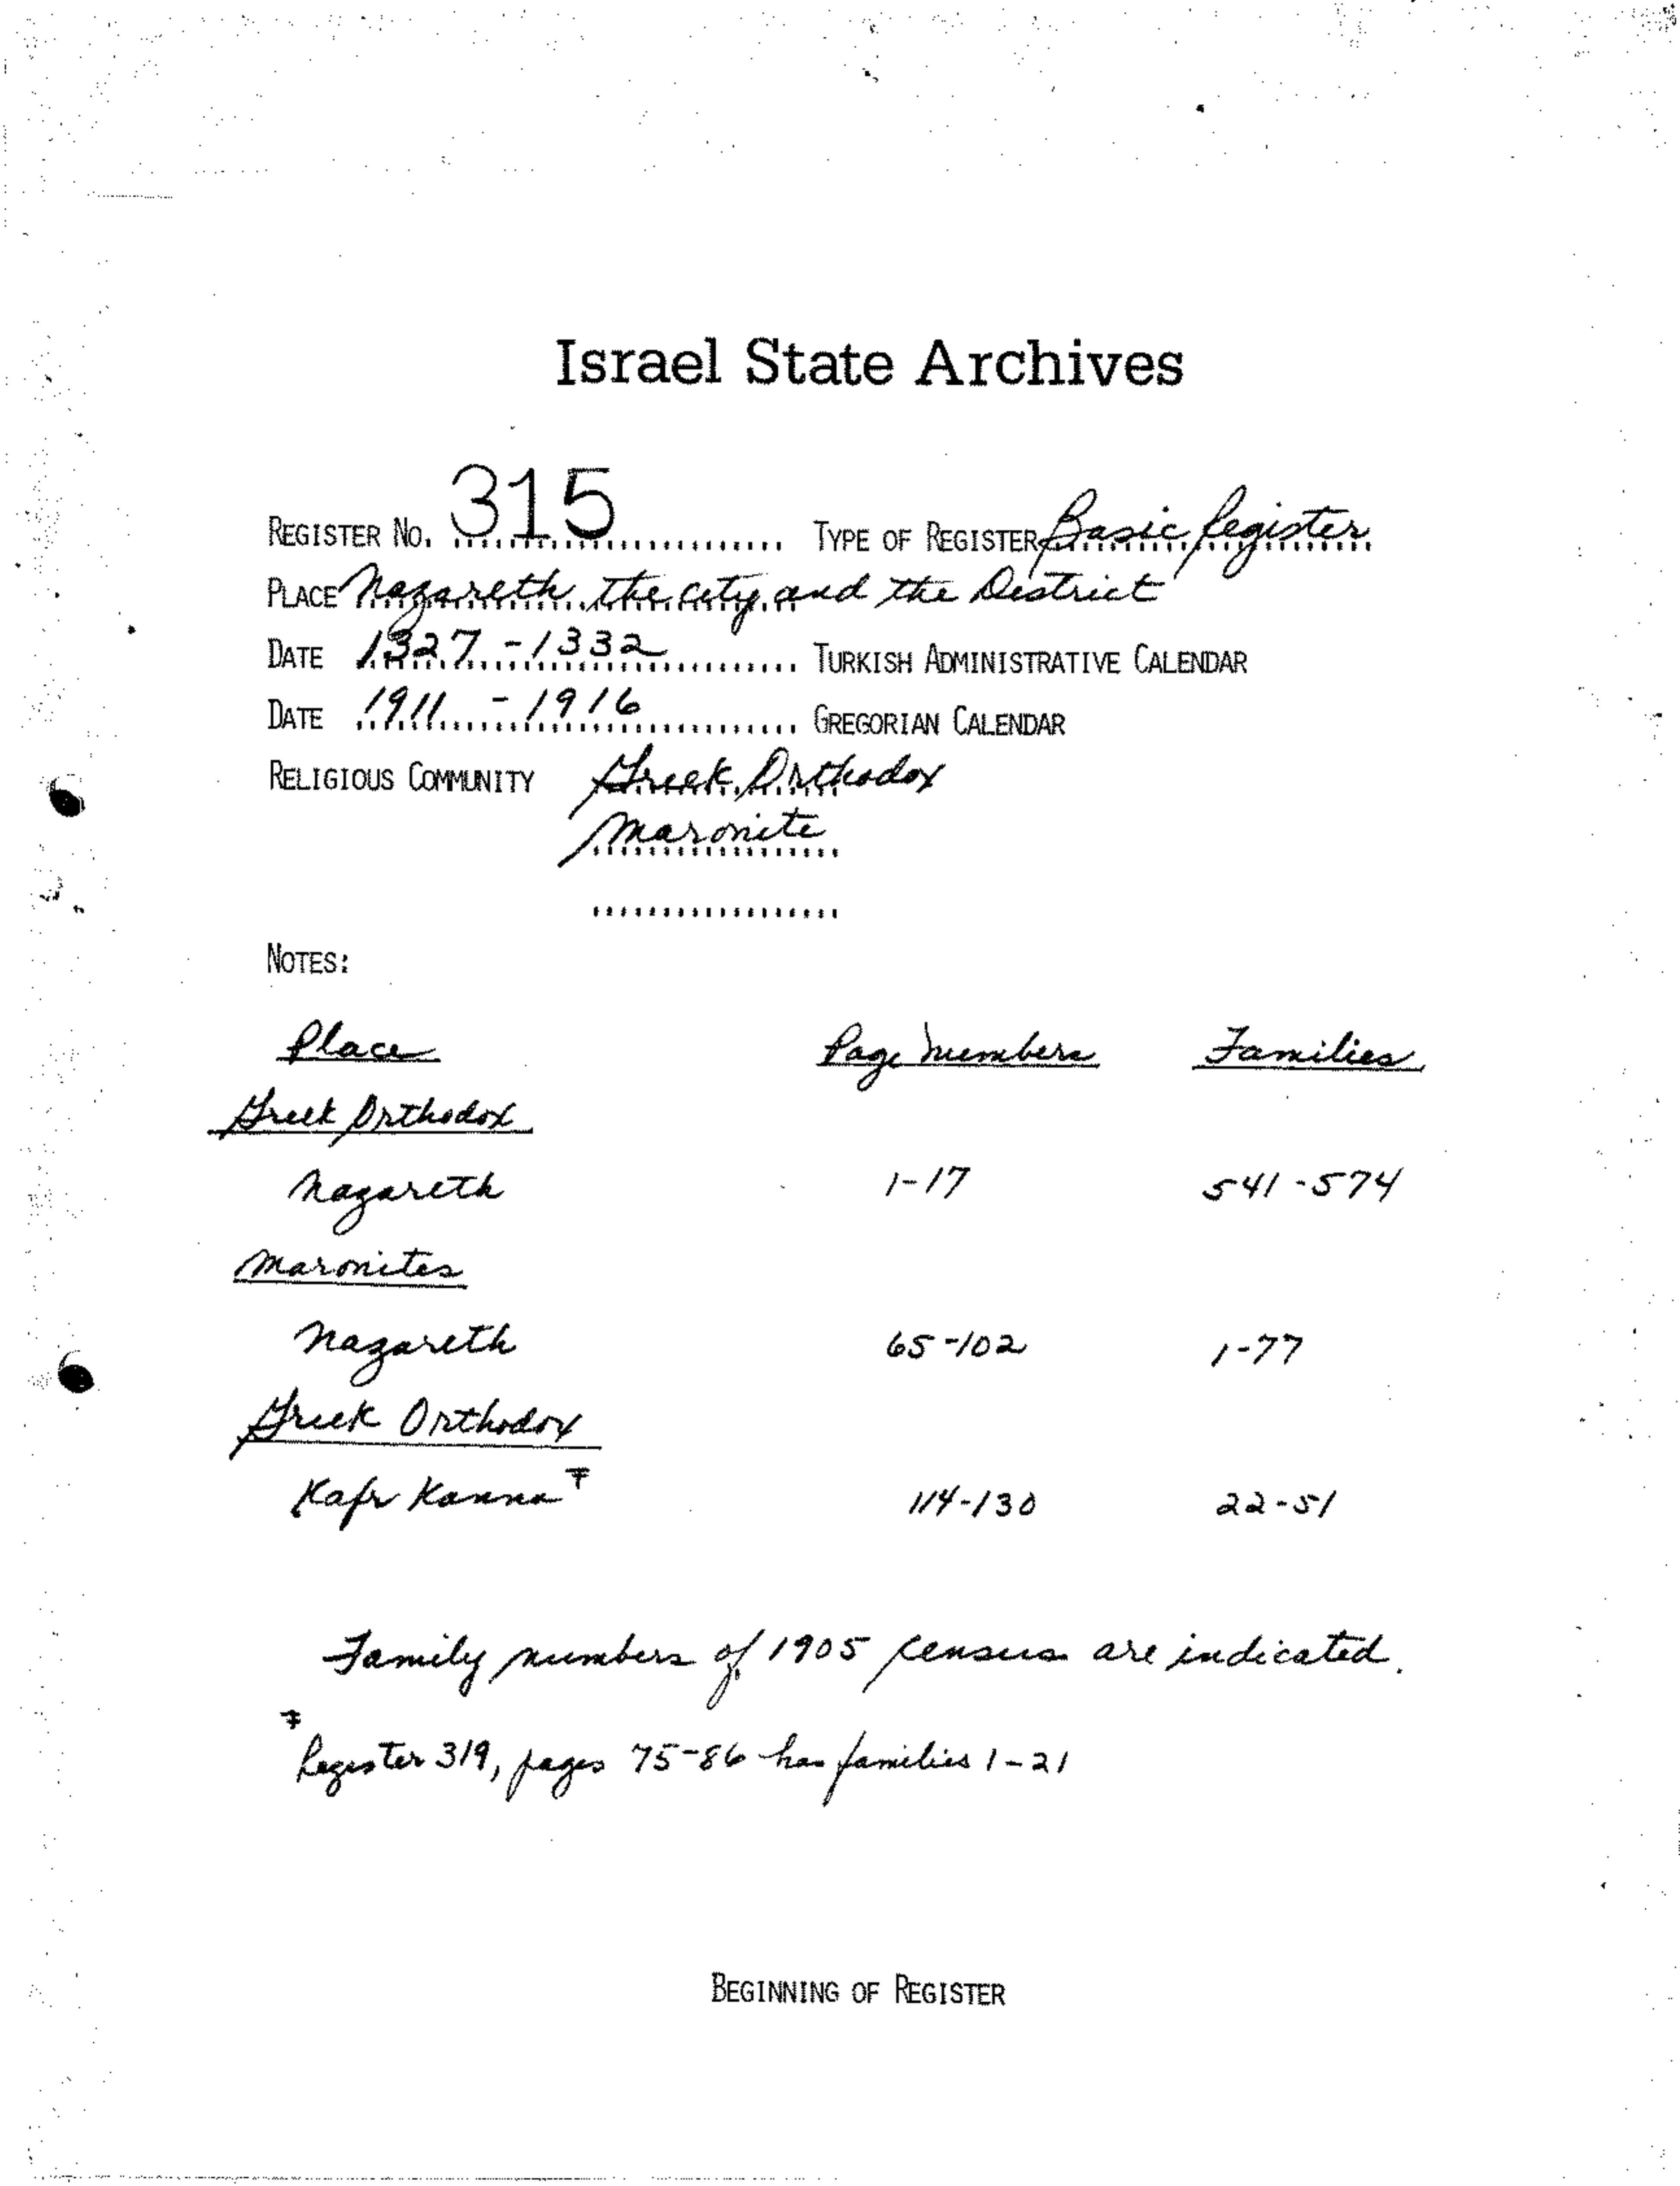 Israel State Archives
REGISTER NO. 315 TYPE OF REGISTER Basic Register
PLACE Nazareth, the city and the District
DATE 1327 - 1332 TURKISH ADMINISTRATIVE CALENDAR
DATE 1911 - 1916 GREGORIAN CALENDAR
RELIGIOUS COMMUNITY Greek Orthodox
Maronite
NOTES:
Place Page Numbers Families
Greek Orthodox
Nazareth 1-17 541-574
Maronites
Nazareth 65-102 1-77
Greek Orthodox
Kafr Kanna ‡ 114-130 22-51
Family numbers of 1905 census are indicated.
‡
Register 319, pages 75-86 has families 1-21
BEGINNING OF REGISTER